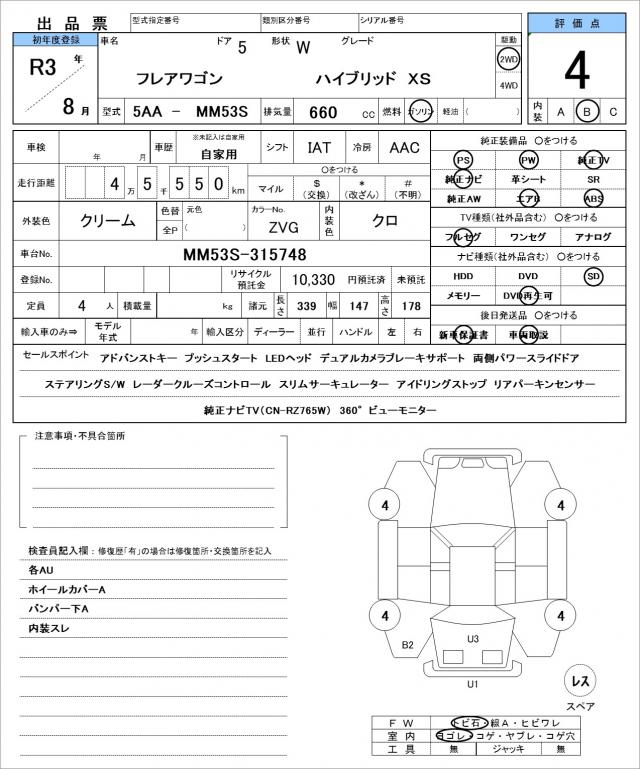 出品票 型式指定番号 類別区分番号 シリアル番号 評価点
初年度登録 車名 ドア 5 形状 W グレード 駆動
R3 年 フレアワゴン ハイブリッド XS 2WD 4WD 4
8 月 型式 5AA - MM53S 排気量 660 cc 燃料 ガソリン 軽油 ( ) 内装 A B C
車検 年 月 車歴 ※未記入は自家用 自家用 シフト IAT 冷房 AAC
走行距離 4 万 5 千 5 5 0 km ○をつける マイル $ (交換) * (改ざん) # (不明)
外装色 クリーム 色替 元色 全P ( ) カラーNo. ZVG 内装色 クロ
車台No. MM53S-315748
登録No. リサイクル預託金 10,330 円預託済 未預託
定員 4 人 積載量 kg 諸元 長さ 339 幅 147 高さ 178
輸入車のみ⇒ モデル年式 年 輸入区分 ディーラー 並行 ハンドル 左 右
純正装備品 ○をつける
PS PW 純正TV
純正ナビ 革シート SR
純正AW エアB ABS
TV種類(社外品含む) ○をつける
フルセグ ワンセグ アナログ
ナビ種類(社外品含む) ○をつける
HDD DVD SD
メモリー DVD再生可
後日発送品 ○をつける
新車保証書 車両取説
セールスポイント アドバンストキー プッシュスタート LEDヘッド デュアルカメラブレーキサポート 両側パワースライドドア
ステアリングS/W レーダークルーズコントロール スリムサーキュレーター アイドリングストップ リアパーキンセンサー
純正ナビTV(CN-RZ765W) 360°ビューモニター
注意事項・不具合箇所
検査員記入欄：修復歴「有」の場合は修復箇所・交換箇所を記入
各AU
ホイールカバーA
バンパー下A
内装スレ
4 4
4 4
B2 U3
U1
レス
スペア
FW トビ石・線A・ヒビワレ
室内 ヨゴレ・コゲ・ヤブレ・コゲ穴
工具 無 ジャッキ 無